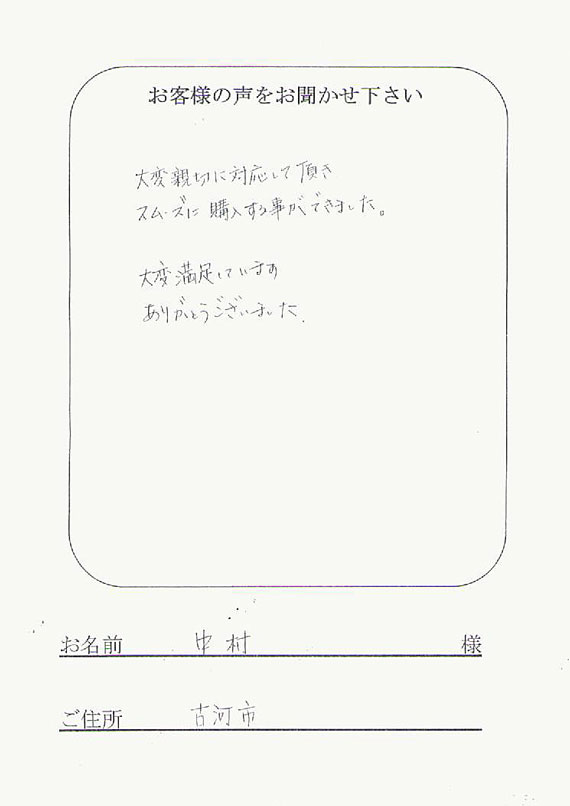 お客様の声をお聞かせ下さい
大変親切に対応して頂き
スムーズに購入する事ができました。
大変満足しています
ありがとうございました.
お名前 中村 様
ご住所 古河市